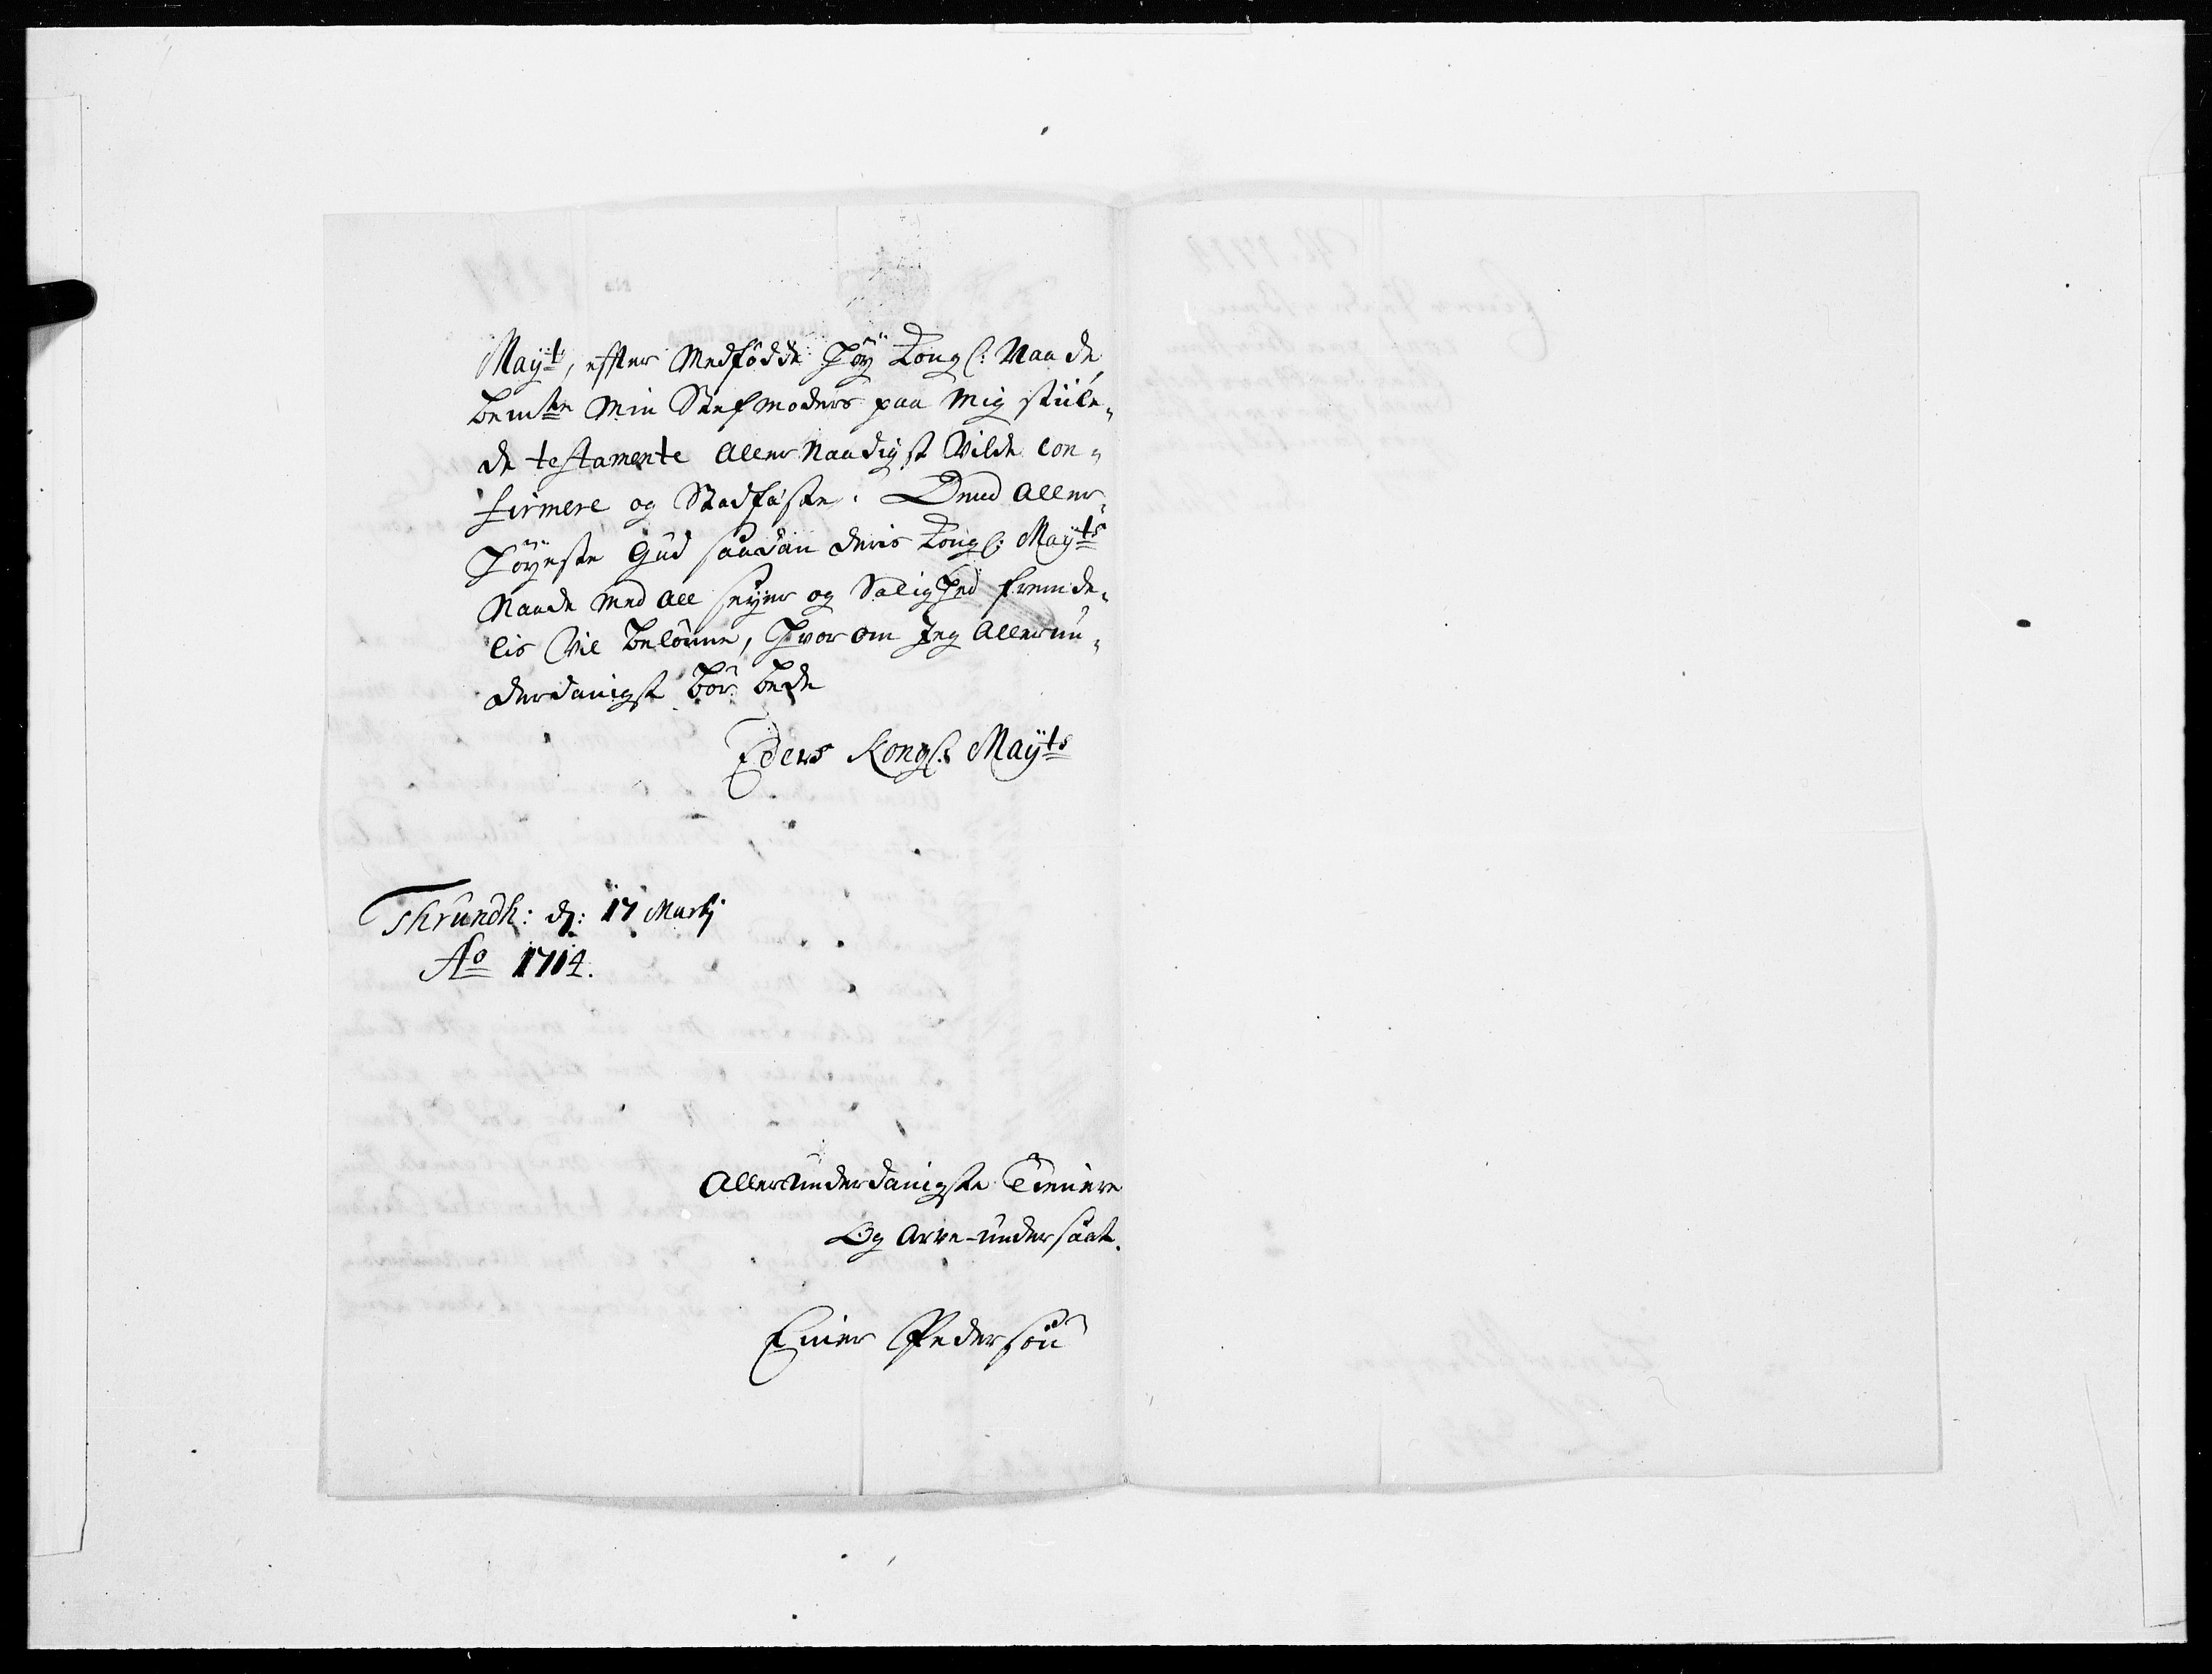 Mayt:, efter Medfödde Höy Kongl: Naade,
bemte Min Stefmoders paa Mig stiile„
de testamente Aller Naadigst Vilde con„
firmere og Stadfæste. Dend Aller„
Höyeste Gud saadan deris Kongl: Mayts
Naade Med All Seyer og Salighed fremde„
lis Vil belönne, Hvor om Jeg Allerun„
derdanigst bör bede
Eders Kongl: Mayts
Thrundh: dj: 17 Martj
Ao 1714.
Allerunderdanigste Tienere
Og Arve-undersaat.
Einer Pedersön